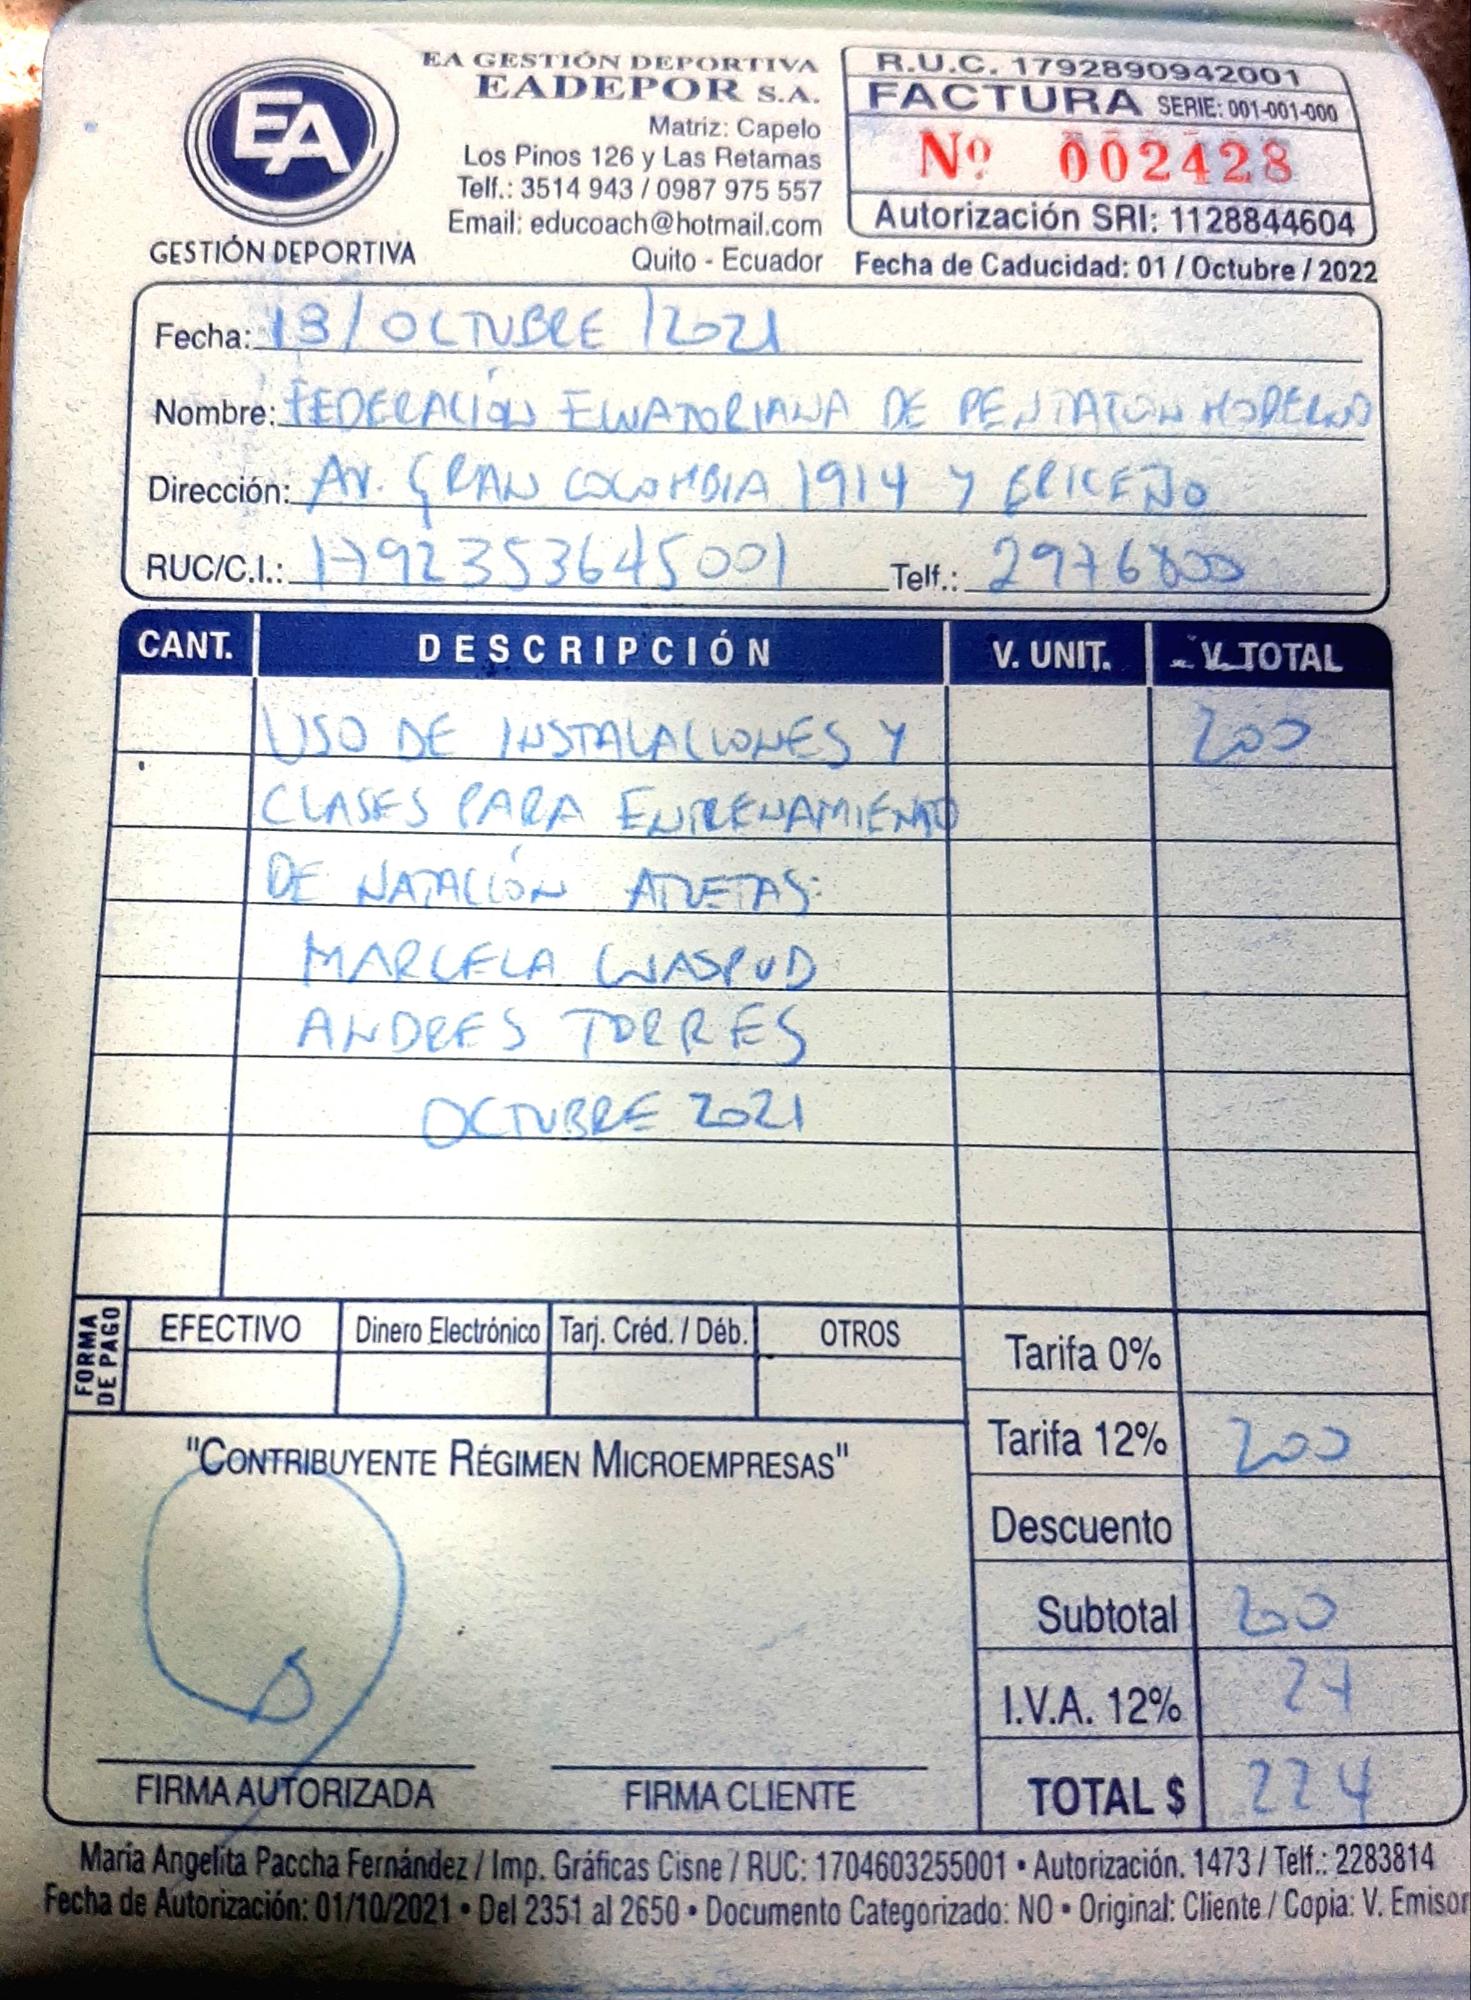 EA
GESTIÓN DEPORTIVA
EA GESTIÓN DEPORTIVA
EADEPOR S.A.
Matriz: Capelo
Los Pinos 126 y Las Retamas
Telf.: 3514 943 / 0987 975 557
Email: educoach@hotmail.com
Quito - Ecuador
R.U.C. 1792890942001
FACTURA SERIE: 001-001-000
Nº 002428
Autorización SRI: 1128844604
Fecha de Caducidad: 01 / Octubre / 2022
Fecha: 13/OCTUBRE/2021
Nombre: FEDERACIÓN ECUATORIANA DE PENTATLON MODERNO
Dirección: AV. GRAN COLOMBIA 1914 Y BRICEÑO
RUC/C.I.: 1792353645001 Telf.: 2976800
CANT. DESCRIPCIÓN V. UNIT. V. TOTAL
USO DE INSTALACIONES Y 200
CLASES PARA ENTRENAMIENTO
DE NATACIÓN ATLETAS:
MARCELA CUASPUD
ANDRES TORRES
OCTUBRE 2021
FORMA DE PAGO
EFECTIVO Dinero Electrónico Tarj. Créd. / Déb. OTROS
Tarifa 0%
Tarifa 12% 200
Descuento
Subtotal 200
I.V.A. 12% 24
TOTAL $ 224
"CONTRIBUYENTE RÉGIMEN MICROEMPRESAS"
FIRMA AUTORIZADA FIRMA CLIENTE
María Angelita Paccha Fernández / Imp. Gráficas Cisne / RUC: 1704603255001 • Autorización. 1473 / Telf.: 2283814
Fecha de Autorización: 01/10/2021 • Del 2351 al 2650 • Documento Categorizado: NO • Original: Cliente / Copia: V. Emisor